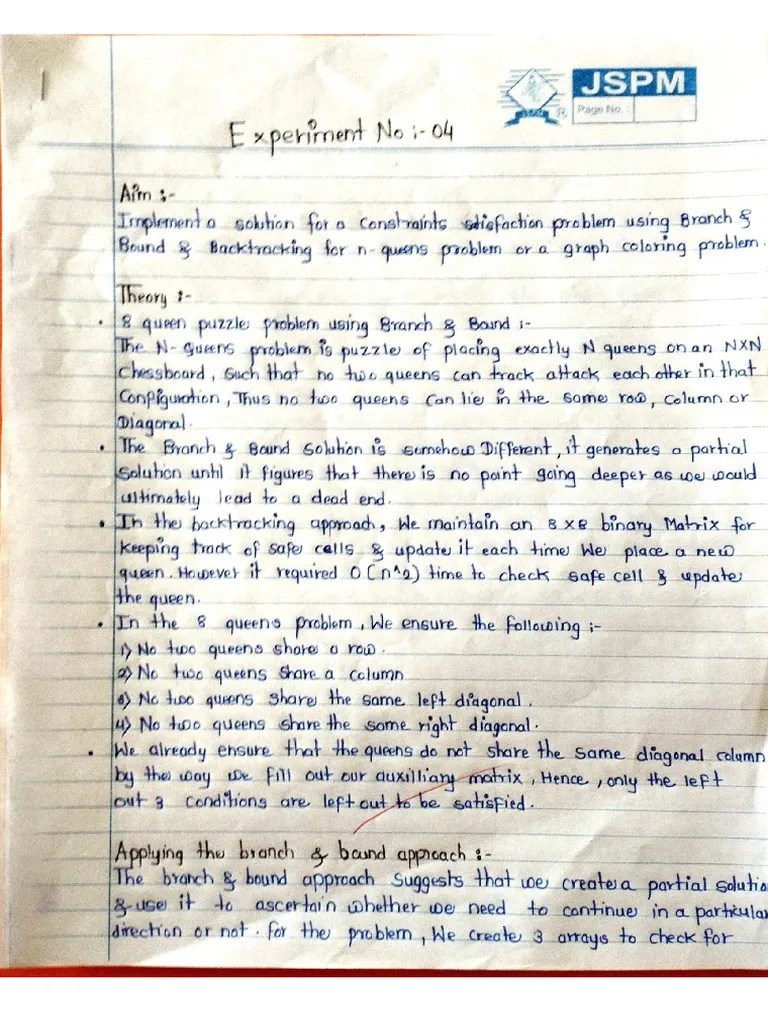 JSPM
Page No. :
Experiment No :- 04
Aim :-
Implement a solution for a constraints satisfaction problem using Branch &
Bound & Backtracking for n-queens problem or a graph coloring problem.
Theory :-
• 8 queen puzzle problem using Branch & Bound :-
The N-Queens problem is puzzle of placing exactly N queens on an NXN
Chessboard, such that no two queens can track attack each other in that
Configuration, Thus no two queens can lie in the same row, column or
Diagonal.
• The Branch & Bound Solution is somehow Different, it generates a partial
solution until it figures that there is no point going deeper as we would
ultimately lead to a dead end.
• In the backtracking approach, We maintain an 8x8 binary Matrix for
keeping track of safe cells & update it each time We place a new
queen. However it required O(n^2) time to check safe cell & update
the queen.
• In the 8 queens problem, We ensure the following :-
1) No two queens share a row.
2) No two queens share a column
3) No two queens share the same left diagonal.
4) No two queens share the same right diagonal.
• We already ensure that the queens do not share the same diagonal column
by the way we fill out our auxilliary matrix, Hence, only the left
out 3 conditions are left out to be satisfied.
Applying the branch & bound approach :-
The branch & bound approach suggests that we create a partial solutio
& use it to ascertain whether we need to continue in a particular
direction or not. for the problem, We create 3 arrays to check for